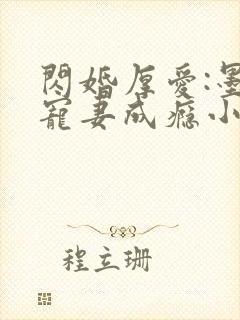 閃婚厚愛:墨
寵妻成癮小
程立珊